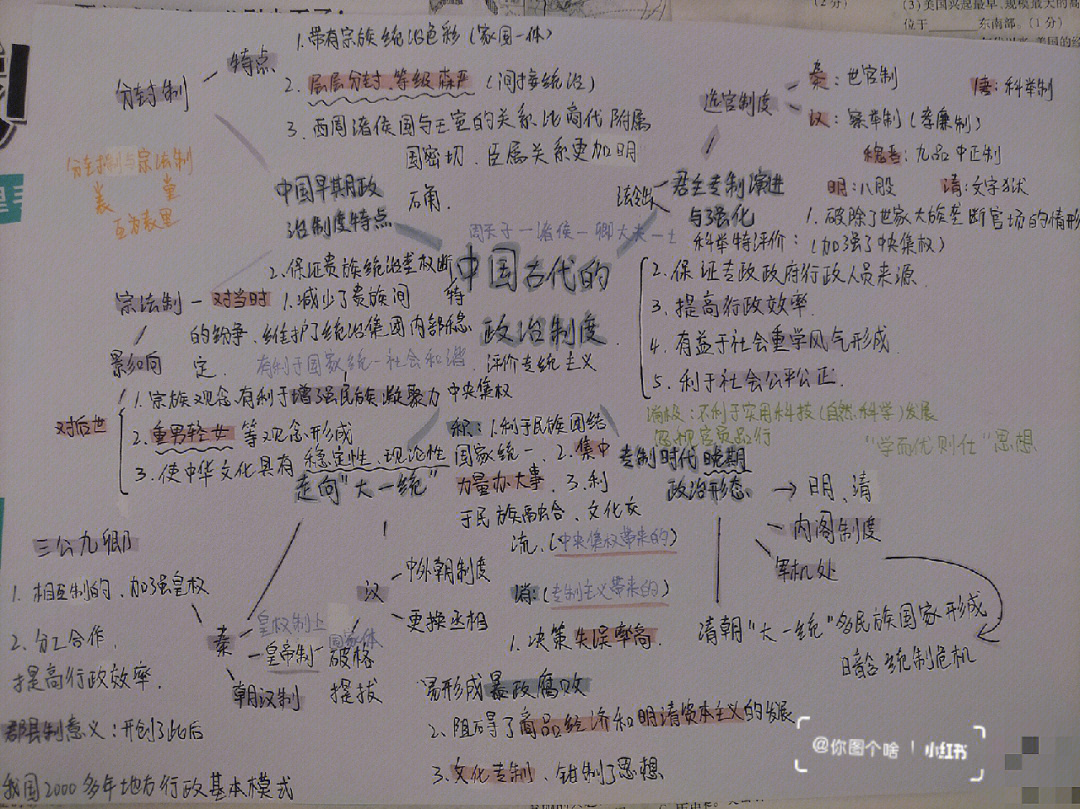 (3)美国兴起最早、规模最大的高
位于 东南部。(1分)
分封制
特点
1.带有宗族统治色彩(家国一体)
2.层层分封、等级森严(间接统治)
3.西周诸侯国与王室的关系比商代附属
国密切、臣属关系更加明
确.
分封制与宗法制
表 里
互为表里
中国早期政
治制度特点
选官制度
秦:世官制
唐:科举制
汉:察举制(孝廉制)
魏晋:九品中正制
明:八股
清:文字狱
君主专制演进
与强化
科举特评价:
1.破除了世家大族垄断官场的情形
(加强了中央集权)
2.保证专政政府行政人员来源
3.提高行政效率.
4.有益于社会重学风气形成
5.利于社会公平公正.
消极:不利于实用科技(自然科学)发展
忽视官员品行
“学而优则仕”思想
周天子—诸侯—卿大夫—士
中国古代的
政治制度.
宗法制
对当时
1.减少了贵族间
的纷争、维护了统治集团内部稳
定.
2.保证贵族统治垄权断
特
有利于国家统一社会和谐
影响
对后世
1.宗族观念有利于增强民族凝聚力
2.重男轻女等观念形成
3.使中华文化具有稳定性、现论性
评价专统主义
中央集权
积:1.利于民族团结
国家统一、2.集中
力量办大事、3.利
于民族融合、文化交
流.(中央集权带来的)
消:(专制主义带来的)
1.决策失误率高.
易形成暴政腐败
2.阻碍了商品经济和明清资本主义的发展
3.文化专制、钳制了思想
专制时代晚期
政治形态.
→明、清
内阁制度
军机处
清朝“大一统”多民族国家形成
暗含统制危机
走向“大一统”
三公九卿
1.相互制约、加强皇权
2.分工合作.
提高行政效率.
秦
皇权制上
皇帝制
国家体
朝议制
汉
中外朝制度
更换丞相
破格
提拔
郡县制意义:开创了此后
我国2000多年地方行政基本模式
@你图个啥 | 小红书